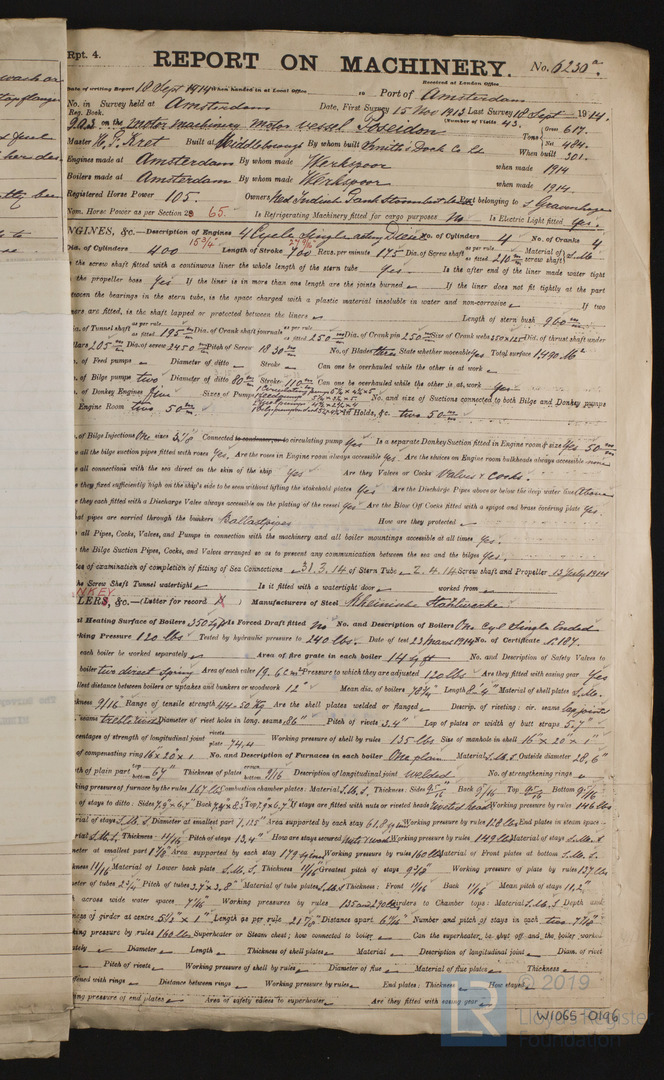 Rpt. 4.
REPORT ON MACHINERY.
No. 6230a.
Received at London Office
Date of writing Report 18 Sept 1914 When handed in at Local Office to Port of Amsterdam
No. in Survey held at Amsterdam Date, First Survey 15 Nov 1913 Last Survey 18 Sept 1914.
Reg. Book. (Number of Visits 43.
on the Motor Machinery Motor Vessel Poseidon Tons Gross 617.
Net 404.
Master Kret Built at Middlesbrough By whom built Smiths Dock Co Ld When built
Engines made at Amsterdam By whom made Werkspoor when made 1914
Boilers made at Amsterdam By whom made Werkspoor when made 1914.
Registered Horse Power 105. Owners Port belonging to s Gravenhage
Nom. Horse Power as per Section 28 65. Is Refrigerating Machinery fitted for cargo purposes No Is Electric Light fitted Yes.
NGINES, &c.—Description of Engines 4 Cycle Single acting Diesel No. of Cylinders 4 No. of Cranks 4
Dia. of Cylinders 400 15 3/4" Length of Stroke 700 27 9/16" Revs. per minute 175 Dia. of Screw shaft as per rule as fitted 210 Material of screw shaft
the screw shaft fitted with a continuous liner the whole length of the stern tube Yes Is the after end of the liner made water tight
the propeller boss Yes If the liner is in more than one length are the joints burned If the liner does not fit tightly at the part
between the bearings in the stern tube, is the space charged with a plastic material insoluble in water and non-corrosive If two
liners are fitted, is the shaft lapped or protected between the liners Length of stern bush 960 m/m
Dia. of Tunnel shaft as per rule as fitted 195 m/m Dia. of Crank shaft journals as per rule as fitted 250 m/m Dia. of Crank pin 250 m/m Size of Crank webs Dia. of thrust shaft under
collars 205 m/m Dia. of screw 2450 m/m Pitch of Screw 1830 m/m No. of Blades three State whether moveable Yes Total surface
No. of Feed pumps Diameter of ditto Stroke Can one be overhauled while the other is at work
No. of Bilge pumps two Diameter of ditto 80 m/m Stroke 110 m/m Can one be overhauled while the other is at work Yes
No. of Donkey Engines five Sizes of Pumps No. and size of Suctions connected to both Bilge and Donkey pumps
Engine Room two 50 m/m Holds, &c. two 50 m/m
of Bilge Injections One sizes 3 1/8 Connected to condenser, or to circulating pump Yes Is a separate Donkey Suction fitted in Engine room & size Yes 50 m/m
all the bilge suction pipes fitted with roses Yes, Are the roses in Engine room always accessible Yes Are the sluices on Engine room bulkheads always accessible none
all connections with the sea direct on the skin of the ship Yes Are they Valves or Cocks Valves & Cocks.
they fixed sufficiently high on the ship's side to be seen without lifting the stokehold plates Yes Are the Discharge Pipes above or below the deep water line Above
they each fitted with a Discharge Valve always accessible on the plating of the vessel Yes Are the Blow Off Cocks fitted with a spigot and brass covering plate Yes
hat pipes are carried through the bunkers Ballastpipes How are they protected
all Pipes, Cocks, Valves, and Pumps in connection with the machinery and all boiler mountings accessible at all times Yes.
the Bilge Suction Pipes, Cocks, and Valves arranged so as to prevent any communication between the sea and the bilges Yes.
of examination of completion of fitting of Sea Connections 31.3.14 of Stern Tube 2.4.14 Screw shaft and Propeller 13 July 1914
the Screw Shaft Tunnel watertight Is it fitted with a watertight door worked from
NKEY
LERS, &c.—(Letter for record ) Manufacturers of Steel Rheinische Stahlwerke
al Heating Surface of Boilers 350 sq ft Is Forced Draft fitted No No. and Description of Boilers One Cyl. Single Ended
king Pressure 120 lbs Tested by hydraulic pressure to 240 lbs. Date of test 23 March 1914 No. of Certificate 187.
each boiler be worked separately Area of fire grate in each boiler 14 sq ft No. and Description of Safety Valves to
boiler two direct spring Area of each valve Pressure to which they are adjusted 120 lbs Are they fitted with easing gear Yes
llest distance between boilers or uptakes and bunkers or woodwork 12" Mean dia. of boilers Length 8'4" Material of shell plates S.M.S.
kness 9/16 Range of tensile strength 44-50 Kg Are the shell plates welded or flanged Descrip. of riveting: cir. seams lap joints
seams treble rivet Diameter of rivet holes in long. seams Pitch of rivets 3.4" Lap of plates or width of butt straps 5.7"
entages of strength of longitudinal joint rivets plate 74,4 Working pressure of shell by rules 135 lbs Size of manhole in shell 16" × 20" × 1"
of compensating ring 16 × 20 × 1 No. and Description of Furnaces in each boiler One plain Material S.M.S. Outside diameter 28,6"
th of plain part top bottom 67" Thickness of plates crown bottom 9/16 Description of longitudinal joint welded No. of strengthening rings
king pressure of furnace by the rules 167 lbs Combustion chamber plates: Material S.M.S. Thickness: Sides 9/16 Back 9/16 Top 9/16 Bottom 9/16
of stays to ditto: Sides Back Top If stays are fitted with nuts or riveted heads riveted heads Working pressure by rules 146 lbs
rial of stays S.M.S. Diameter at smallest part 1,125" Area supported by each stay Working pressure by rules 128 lbs End plates in steam space
rial S.M.S. Thickness 11/16 Pitch of stays 13,4" How are stays secured Working pressure by rules 149 lbs Material of stays S.M.S
meter at smallest part Area supported by each stay Working pressure by rules 160 lbs Material of Front plates at bottom S.M.S.
kness 11/16 Material of Lower back plate S.M.S. Thickness 11/16 Greatest pitch of stays Working pressure of plate by rules 137 lbs
meter of tubes 2 3/4" Pitch of tubes 3.7" × 3.8" Material of tube plates S.M.S Thickness: Front 11/16 Back 11/16 Mean pitch of stays 11,2"
across wide water spaces Working pressures by rules Girders to Chamber tops: Material S.M.S. Depth and
ness of girder at centre 5 1/2" × 1" Length as per rule Distance apart Number and pitch of stays in each two
king pressure by rules 160 lbs Superheater or Steam chest; how connected to boiler Can the superheater be shut off and the boiler worked
ately Diameter Length Thickness of shell plates Material Description of longitudinal joint Diam. of rivet
Pitch of rivets Working pressure of shell by rules Diameter of flue Material of flue plates Thickness
ffened with rings Distance between rings Working pressure by rules End plates: Thickness How stayed
king pressure of end plates Area of safety valves to superheater Are they fitted with easing gear
© 2019
Lloyd's Register
Foundation
W1065-0196